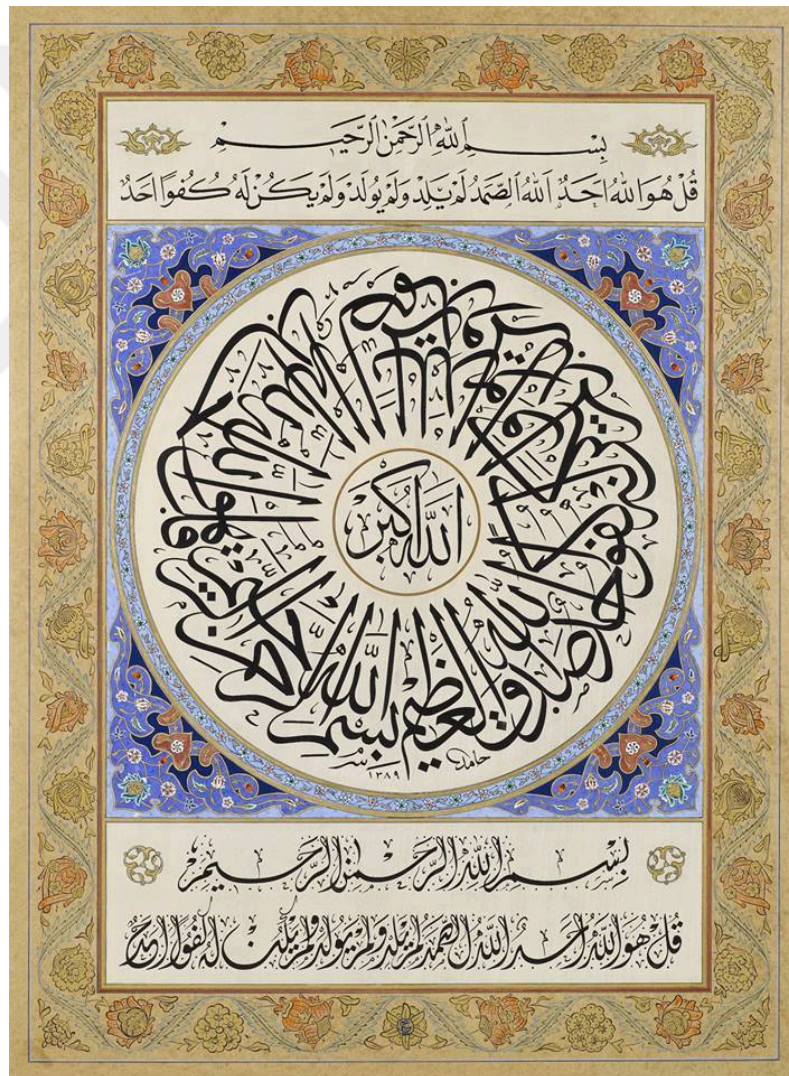 بِسْمِ اللهِ الرَّحْمٰنِ الرَّحِيمِ
قُلْ هُوَ اللهُ اَحَدٌ اَللهُ الصَّمَدُ لَمْ يَلِدْ وَلَمْ يُولَدْ وَلَمْ يَكُنْ لَهُ كُفُوًا اَحَدٌ
بسم الله الرحمن الرحيم قل هو الله احد الله الصمد لم يلد ولم يولد ولم يكن له كفوا احد صدق الله العظيم
الله اكبر
حامد
سنه ١٣٨٩
بِسْمِ اللهِ الرَّحْمٰنِ الرَّحِيمِ
قُلْ هُوَ اللهُ اَحَدٌ اللهُ الصَّمَدُ لَمْ يَلِدْ وَلَمْ يُولَدْ وَلَمْ يَكُنْ لَهُ كُفُوًا اَحَدٌ